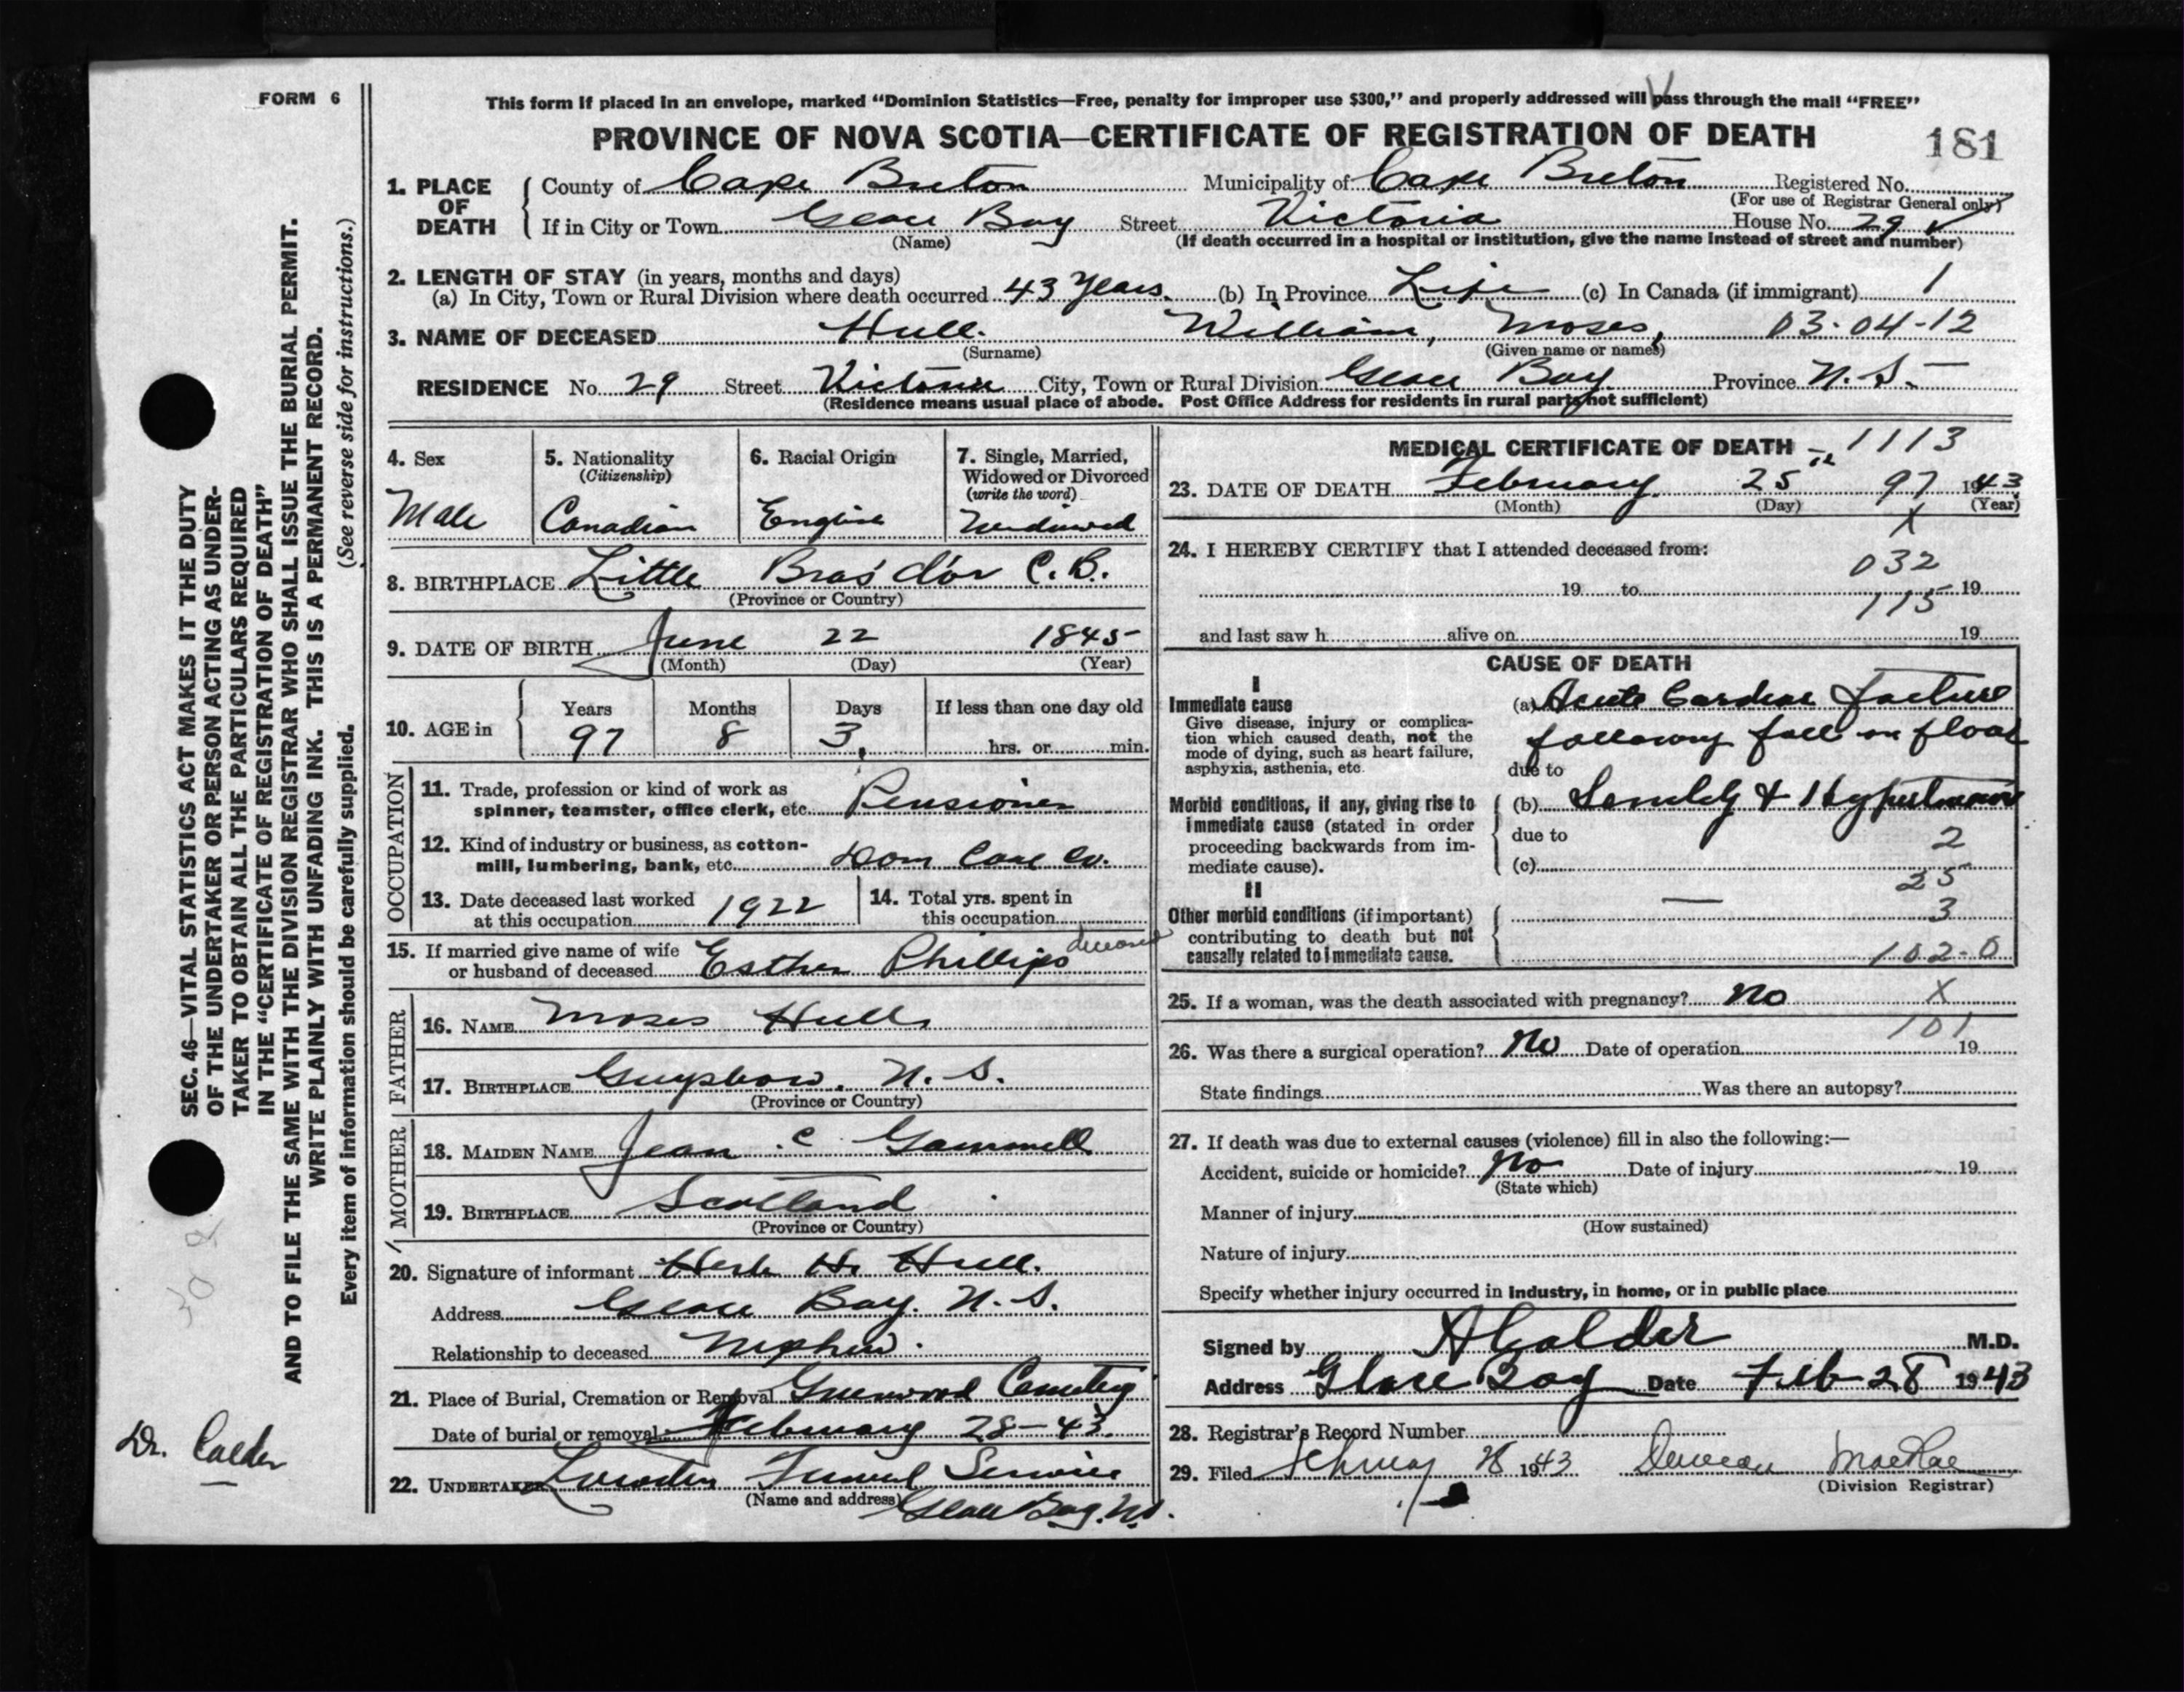 FORM 6
This form if placed in an envelope, marked “Dominion Statistics—Free, penalty for improper use $300,” and properly addressed will pass through the mail “FREE”
PROVINCE OF NOVA SCOTIA—CERTIFICATE OF REGISTRATION OF DEATH
181
1. PLACE OF DEATH
County of Cape Breton Municipality of Cape Breton Registered No.
(For use of Registrar General only)
If in City or Town Glace Bay Street Victoria House No. 29
(Name) (If death occurred in a hospital or institution, give the name instead of street and number)
2. LENGTH OF STAY (in years, months and days)
(a) In City, Town or Rural Division where death occurred 43 Years. (b) In Province Life (c) In Canada (if immigrant) 1
3. NAME OF DECEASED Hull. William, Moses, 03-04-12
(Surname) (Given name or names)
RESIDENCE No. 29 Street Victoria City, Town or Rural Division Glace Bay Province N.S.
(Residence means usual place of abode. Post Office Address for residents in rural parts not sufficient)
4. Sex
Male
5. Nationality
(Citizenship)
Canadian
6. Racial Origin
English
7. Single, Married,
Widowed or Divorced
(write the word)
Widowed
8. BIRTHPLACE Little Bras d'or C.B.
(Province or Country)
9. DATE OF BIRTH June 22 1845
(Month) (Day) (Year)
10. AGE in
Years Months Days If less than one day old
97 8 3 hrs. or min.
OCCUPATION
11. Trade, profession or kind of work as
spinner, teamster, office clerk, etc. Pensioner
12. Kind of industry or business, as cotton-
mill, lumbering, bank, etc. Dom Coal Co.
13. Date deceased last worked
at this occupation 1922
14. Total yrs. spent in
this occupation
15. If married give name of wife
or husband of deceased Esther Phillips deceased
FATHER
16. NAME Moses Hull
17. BIRTHPLACE Guysboro. N.S.
(Province or Country)
MOTHER
18. MAIDEN NAME Jean C Gammell
19. BIRTHPLACE Scotland
(Province or Country)
20. Signature of informant H. Hull.
Address Glace Bay. N.S.
Relationship to deceased Nephew.
21. Place of Burial, Cremation or Removal Greenwood Cemetery
Date of burial or removal February 28-43.
22. UNDERTAKER Funeral Service
(Name and address) Glace Bay. N.S.
MEDICAL CERTIFICATE OF DEATH 1113
23. DATE OF DEATH February 25 97 1943
(Month) (Day) (Year)
X
24. I HEREBY CERTIFY that I attended deceased from:
032
19 to 19
115
and last saw h alive on 19
CAUSE OF DEATH
I
Immediate cause
Give disease, injury or complica-
tion which caused death, not the
mode of dying, such as heart failure,
asphyxia, asthenia, etc.
(a) Acute Cardiac Failure
following fall on floor
due to
Morbid conditions, if any, giving rise to
immediate cause (stated in order
proceeding backwards from im-
mediate cause).
(b) Senility & Hypertension
due to
2
(c)
25
II
Other morbid conditions (if important)
contributing to death but not
causally related to immediate cause.
3
102-0
25. If a woman, was the death associated with pregnancy? No X
101
26. Was there a surgical operation? No Date of operation 19
State findings Was there an autopsy?
27. If death was due to external causes (violence) fill in also the following:—
Accident, suicide or homicide? No Date of injury 19
(State which)
Manner of injury
(How sustained)
Nature of injury
Specify whether injury occurred in industry, in home, or in public place
Signed by A Calder M.D.
Address Glace Bay Date Feb 28 1943
28. Registrar's Record Number
29. Filed February 28 1943 Duncan MacRae
(Division Registrar)
SEC. 46—VITAL STATISTICS ACT MAKES IT THE DUTY
OF THE UNDERTAKER OR PERSON ACTING AS UNDER-
TAKER TO OBTAIN ALL THE PARTICULARS REQUIRED
IN THE “CERTIFICATE OF REGISTRATION OF DEATH”
AND TO FILE THE SAME WITH THE DIVISION REGISTRAR WHO SHALL ISSUE THE BURIAL PERMIT.
WRITE PLAINLY WITH UNFADING INK. THIS IS A PERMANENT RECORD.
Every item of information should be carefully supplied. (See reverse side for instructions.)
Dr. Calder